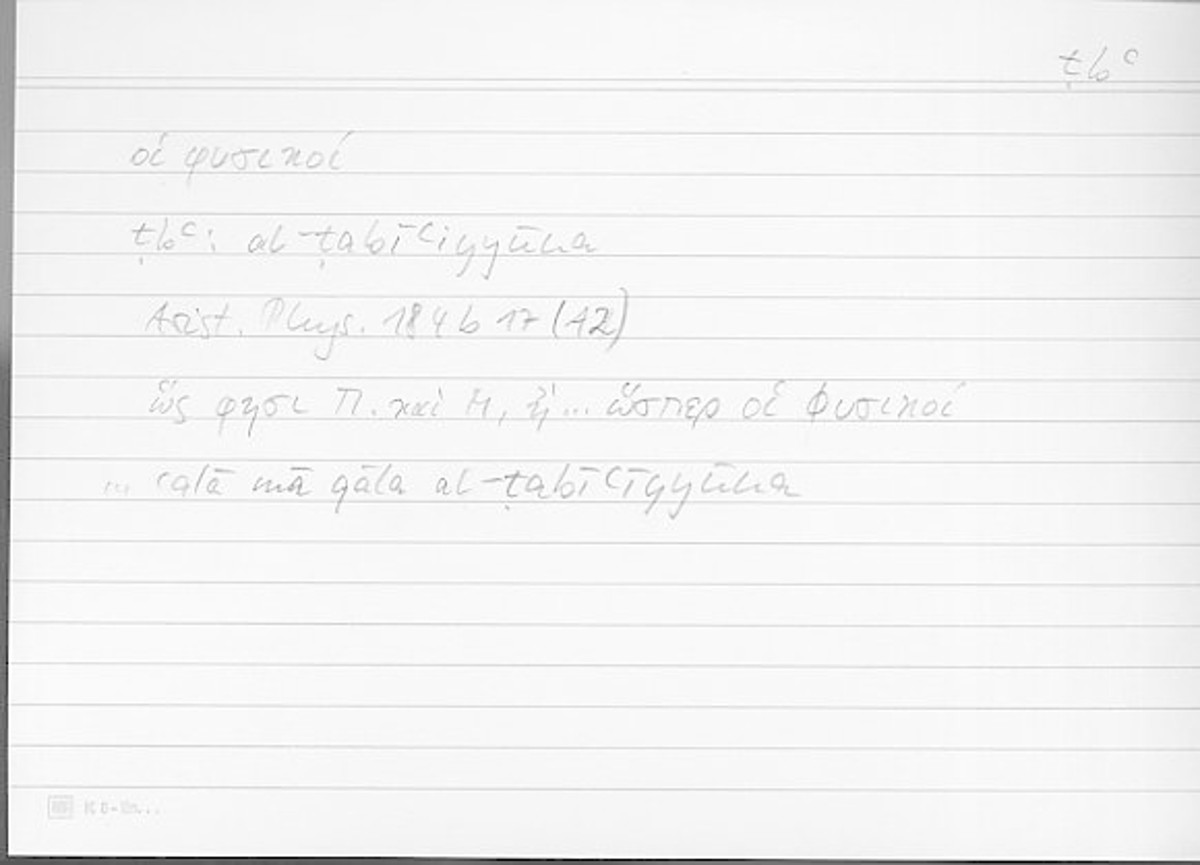 ṭbʿ
οἱ φυσικοί
ṭbʿ: al-ṭabīʿiyyūna
Arist. Phys. 184 b 17 (A2)
ὥς φησι Π. καὶ Μ, ἤ... ὥσπερ οἱ φυσικοί
... ʿalā mā qāla al-ṭabīʿīyyūna